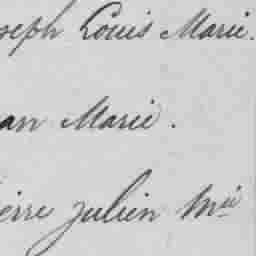 seph Louis Marie.
an Marie.
ierre Julien Mie